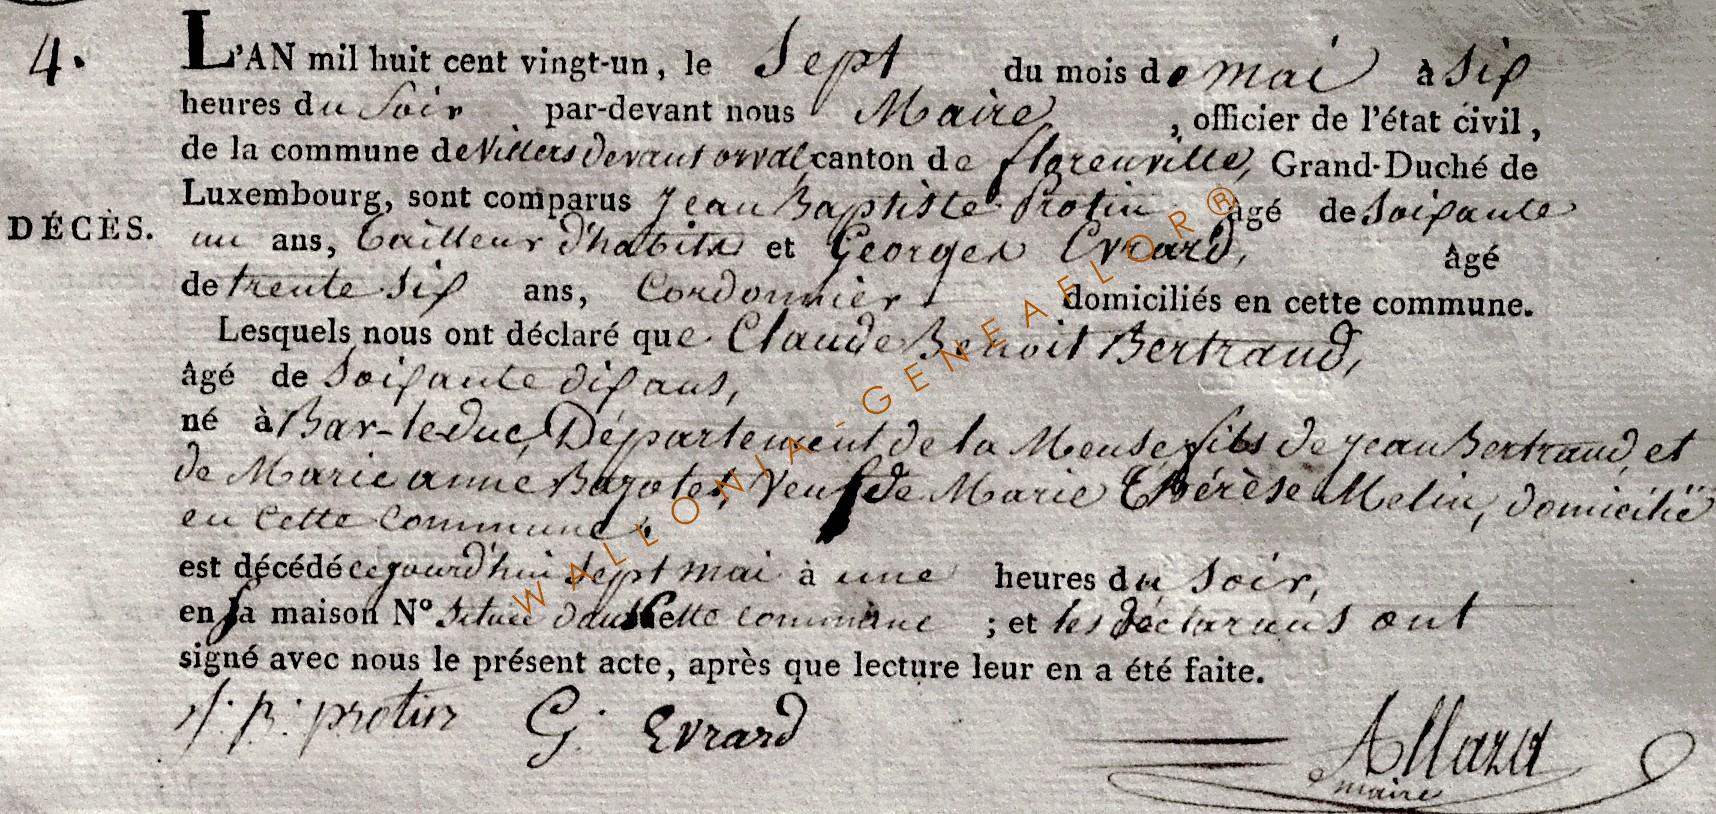 4.
L'AN mil huit cent vingt-un, le Sept du mois de mai à Six
heures du Soir par-devant nous Maire, officier de l'état civil,
de la commune de Villers devant orval, canton de florenville, Grand-Duché de
Luxembourg, sont comparus Jean Baptiste Protin âgé de Soixante
DÉCÈS.
un ans, tailleur d'habits et Georges Evrard, âgé
de trente Six ans, Cordonnier domiciliés en cette commune.
Lesquels nous ont déclaré que Claude Benoit Bertrand,
âgé de Soixante dix ans,
né à Bar-leduc, Département de la Meuse fils de jean Bertrand, et
de Marie anne veuf de Marie Thérèse Melin, domicilié
en cette commune.
est décédé cejourd'hui Sept mai à une heures du Soir,
en sa maison N° Située dans cette commune ; et les déclarans ont
signé avec nous le présent acte, après que lecture leur en a été faite.
J: B: protin G: Evrard
maire
WALLONIA-GENEAFLOR®